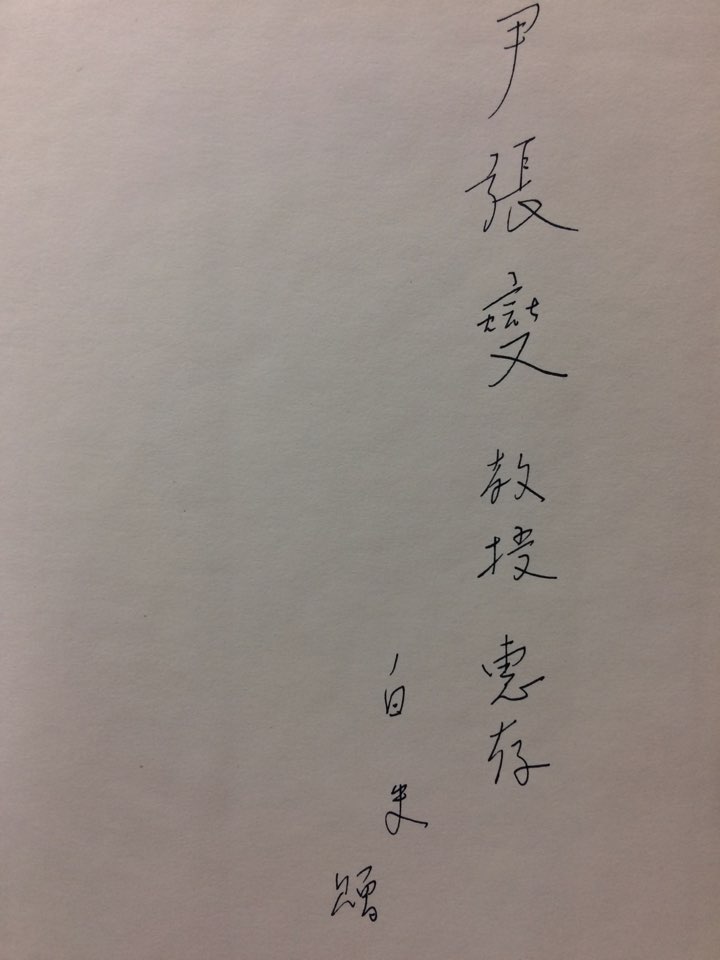 尹張燮 教授 惠存
白史
贈